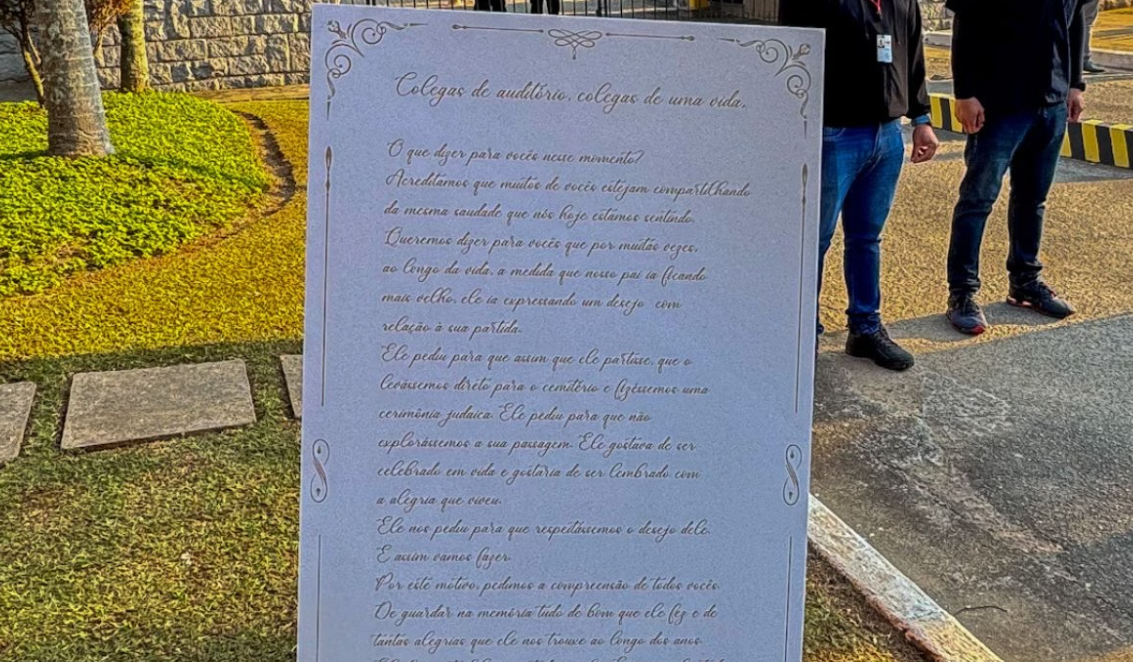 Colegas de auditório, colegas de uma vida,
O que dizer para vocês nesse momento?
Acreditamos que muitos de vocês estejam compartilhando
da mesma saudade que nós hoje estamos sentindo.
Queremos dizer para vocês que por muitas vezes,
ao longo da vida, a medida que nosso pai ia ficando
mais velho, ele ia expressando um desejo com
relação à sua partida.
Ele pediu para que assim que ele partisse, que o
levássemos direto para o cemitério e fizéssemos uma
cerimônia judaica. Ele pediu para que não
explorássemos a sua passagem. Ele gostava de ser
celebrado em vida e gostaria de ser lembrado com
a alegria que viveu.
Ele nos pediu para que respeitássemos o desejo dele.
E assim vamos fazer.
Por este motivo, pedimos a compreensão de todos vocês.
De guardar na memória tudo de bom que ele fez e de
tantas alegrias que ele nos trouxe ao longo dos anos.